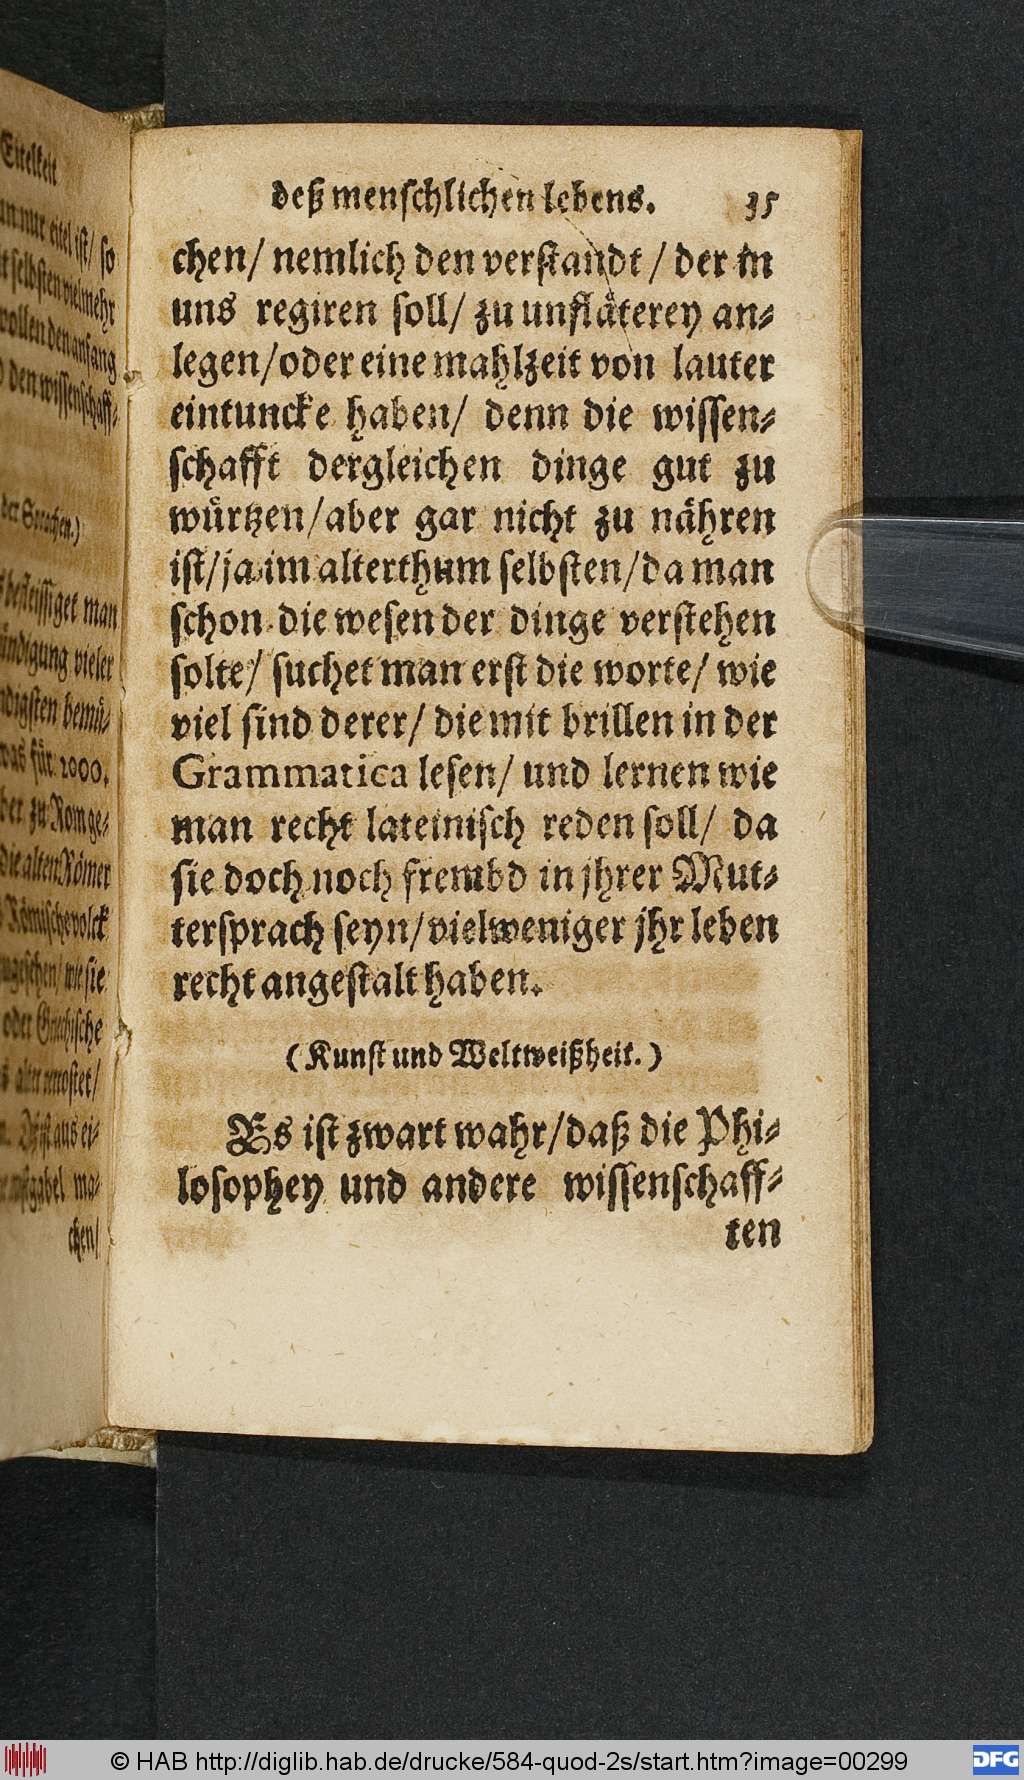 Eitelkeit
nur eitel ist/ so
selbsten vielmehr
wollen den anfang
den wissenschaff-
der Sprachen.)
befleissiget man
vieler
bemü-
was für 1000.
zu Rom ge-
die alten Römer
Römische volck
wie sie
oder Griechische
aus ei-
ma-
chen/
deß menschlichen lebens. 35
chen/ nemlich den verstandt / der in
uns regiren soll/ zu unfläterey an-
legen/oder eine mahlzeit von lauter
eintuncke haben/ denn die wissen-
schafft dergleichen dinge gut zu
würtzen/aber gar nicht zu nähren
ist/ja im alterthum selbsten/da man
schon die wesen der dinge verstehen
solte/ suchet man erst die worte/ wie
viel sind derer/ die mit brillen in der
Grammatica lesen/ und lernen wie
man recht lateinisch reden soll/ da
sie doch noch frembd in jhrer Mut-
tersprach seyn/vielweniger jhr leben
recht angestalt haben.
(Kunst und Weltweißheit.)
Es ist zwart wahr/daß die Phi-
losophey und andere wissenschaff-
ten
© HAB http://diglib.hab.de/drucke/584-quod-2s/start.htm?image=00299
DFG